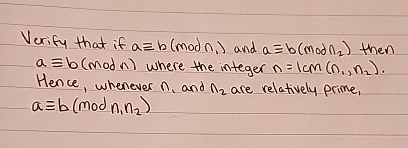 Verify that if a≡b(mod n₁) and a≡b(mod n₂) then
a≡b(mod n) where the integer n=lcm(n₁,n₂).
Hence, whenever n₁ and n₂ are relatively prime,
a≡b(mod n₁n₂)